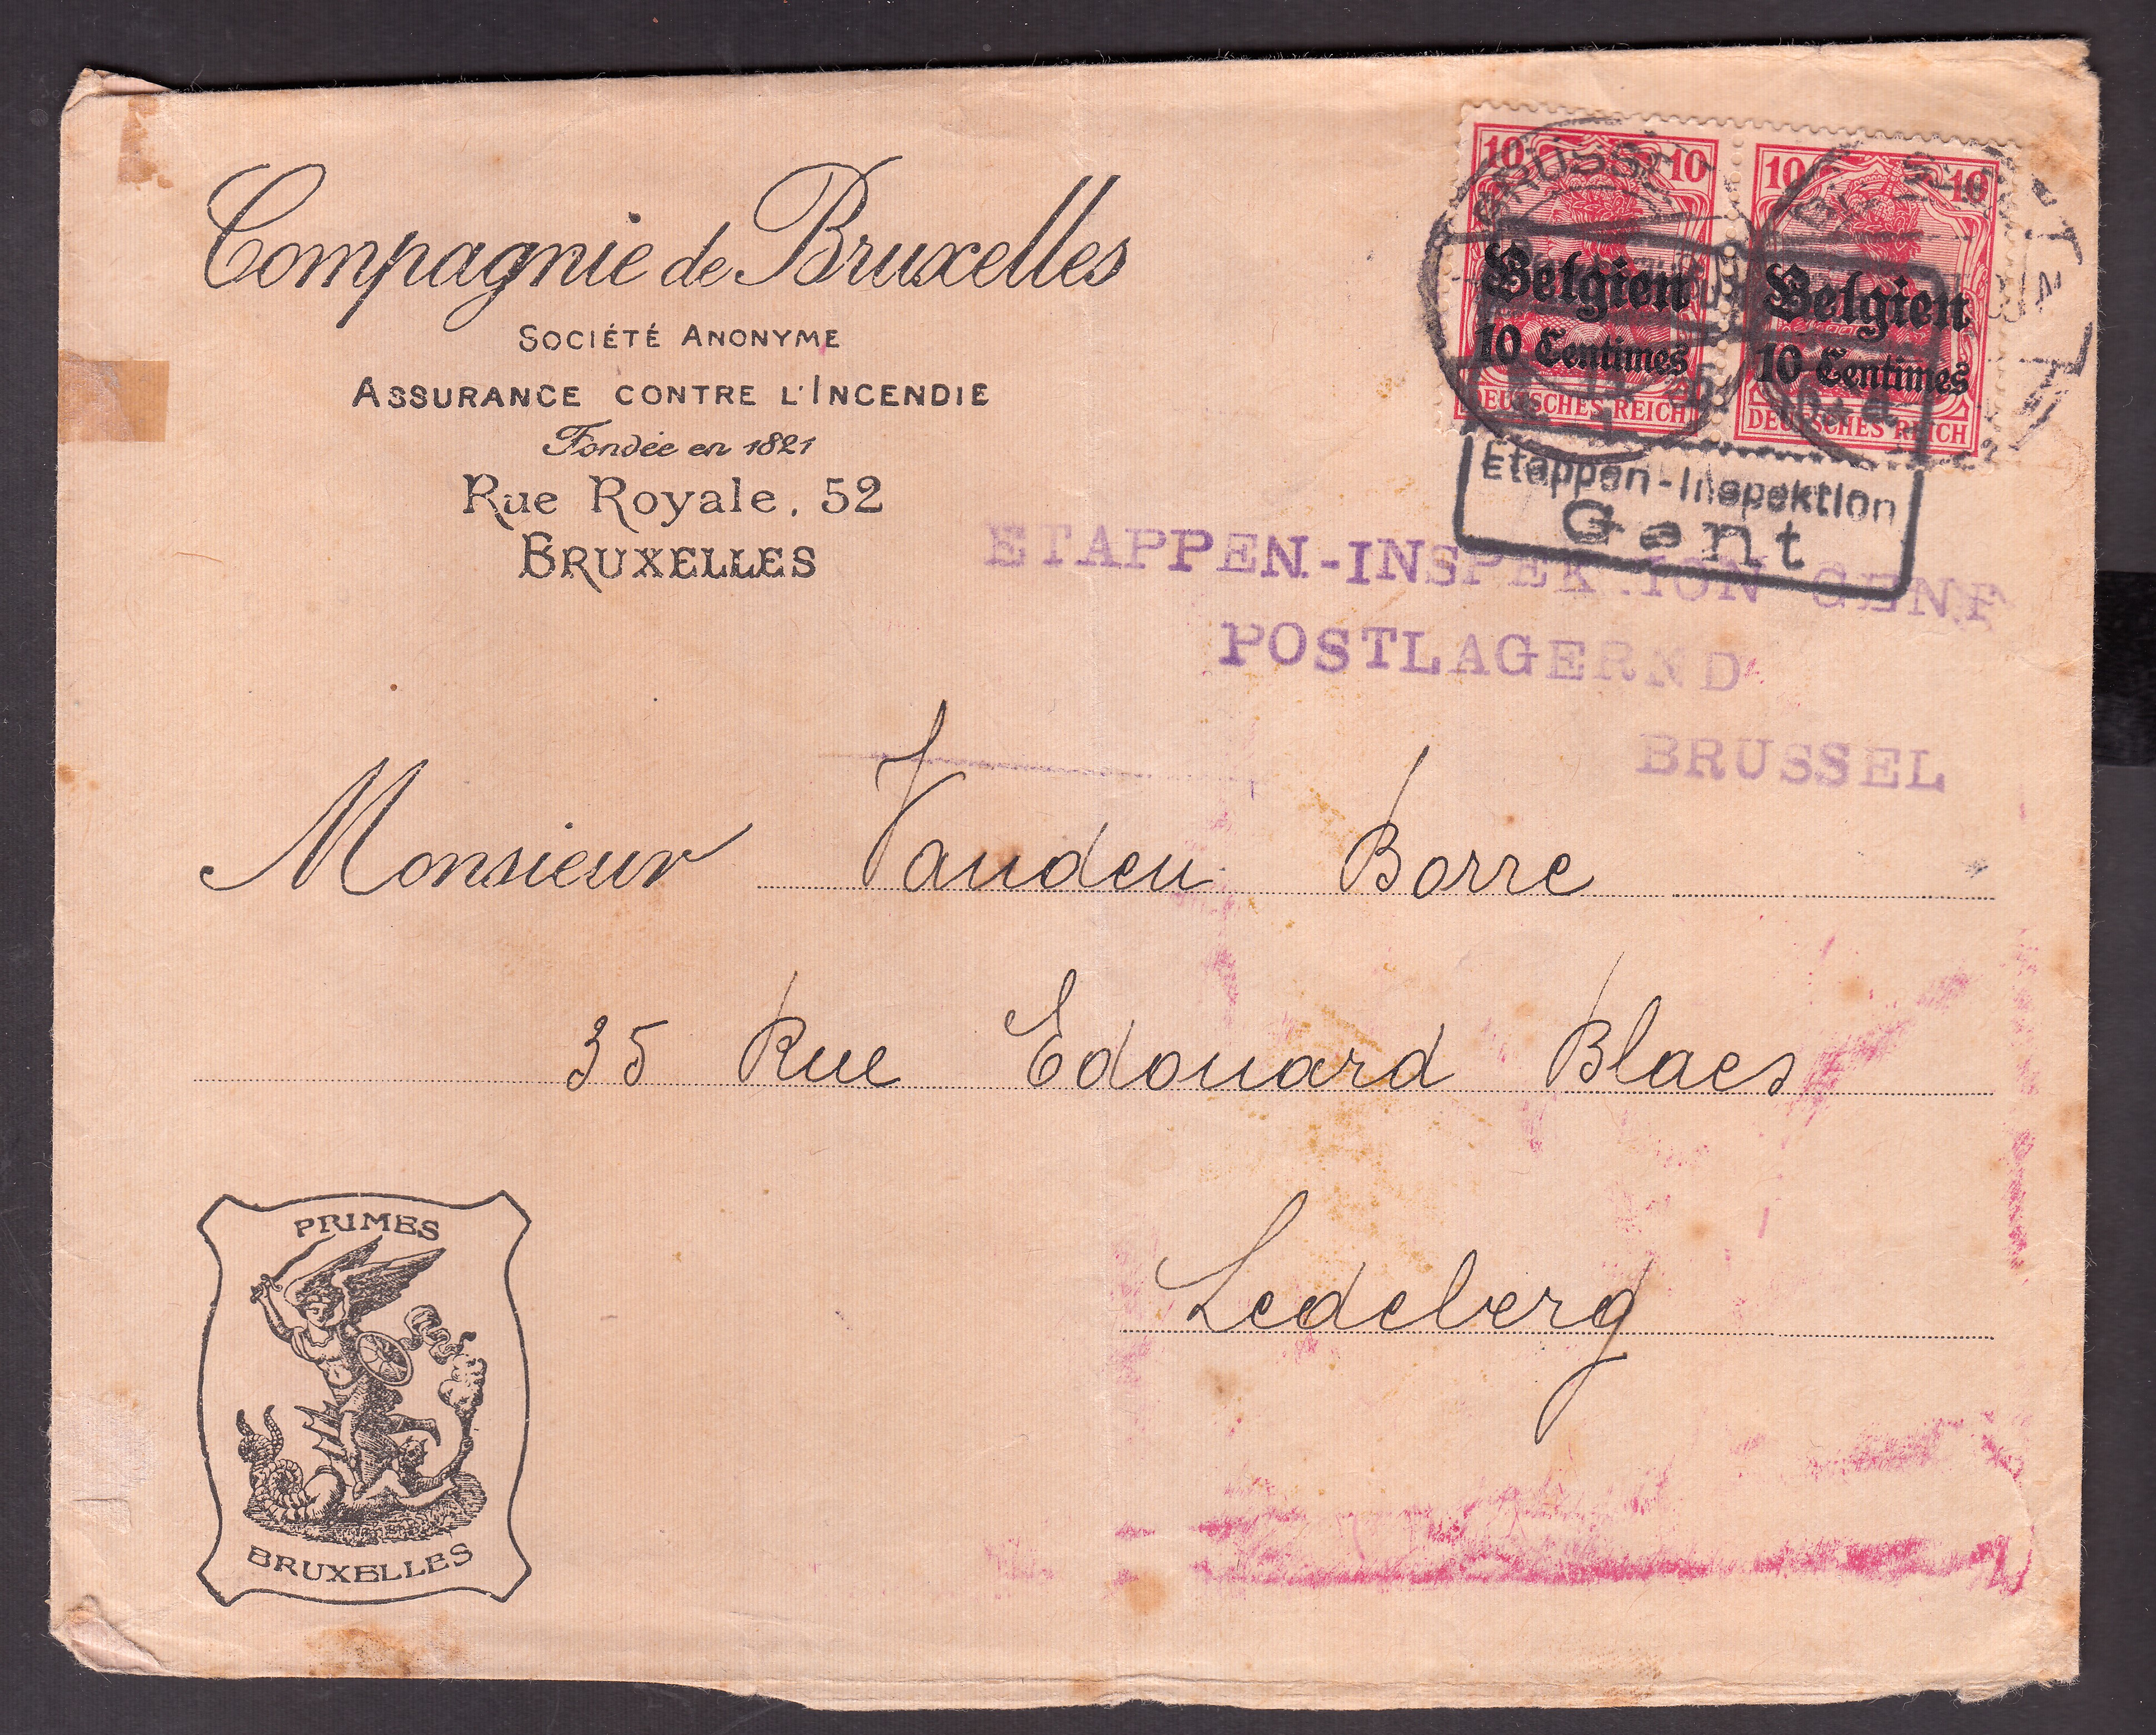 Compagnie de Bruxelles
SOCIÉTÉ ANONYME
ASSURANCE CONTRE L'INCENDIE
Fondée en 1821
Rue Royale, 52
BRUXELLES
10 10
Belgien
10 Centimes
DEUTSCHES REICH
10 10
Belgien
10 Centimes
DEUTSCHES REICH
Etappen-Inspektion
Gent
ETAPPEN-INSPEKTION GENT
POSTLAGERND
BRUSSEL
Monsieur Vanden Borre
35 Rue Edouard Blaes
Ledeberg
PRIMES
BRUXELLES